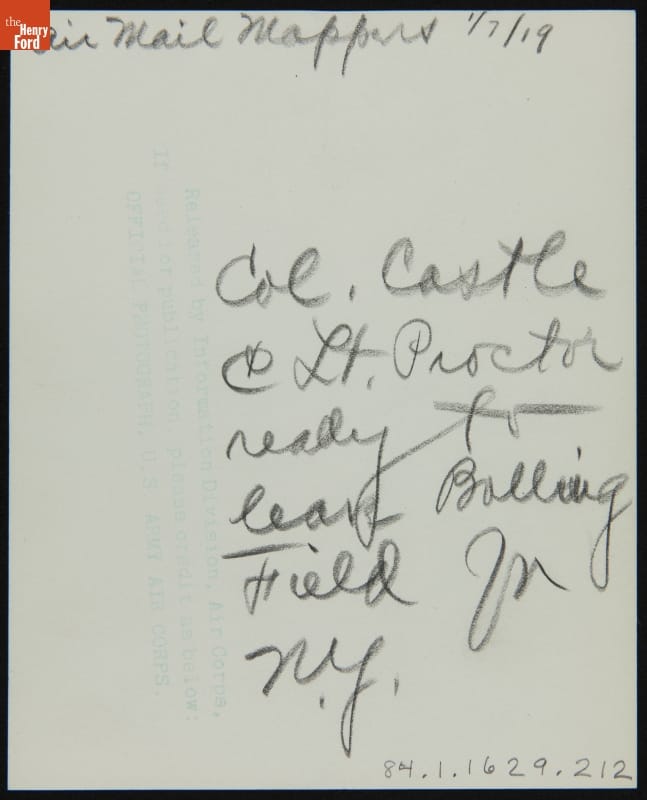 the
Henry
Ford
Air Mail Mappers 1/7/19
Col. Castle
& Lt. Proctor
ready to
leave Bolling
Field for
N.Y.
Released by Information Division, Air Corps,
If used for publication, please credit as below:
OFFICIAL PHOTOGRAPH, U.S. ARMY AIR CORPS.
84.1.1629.212